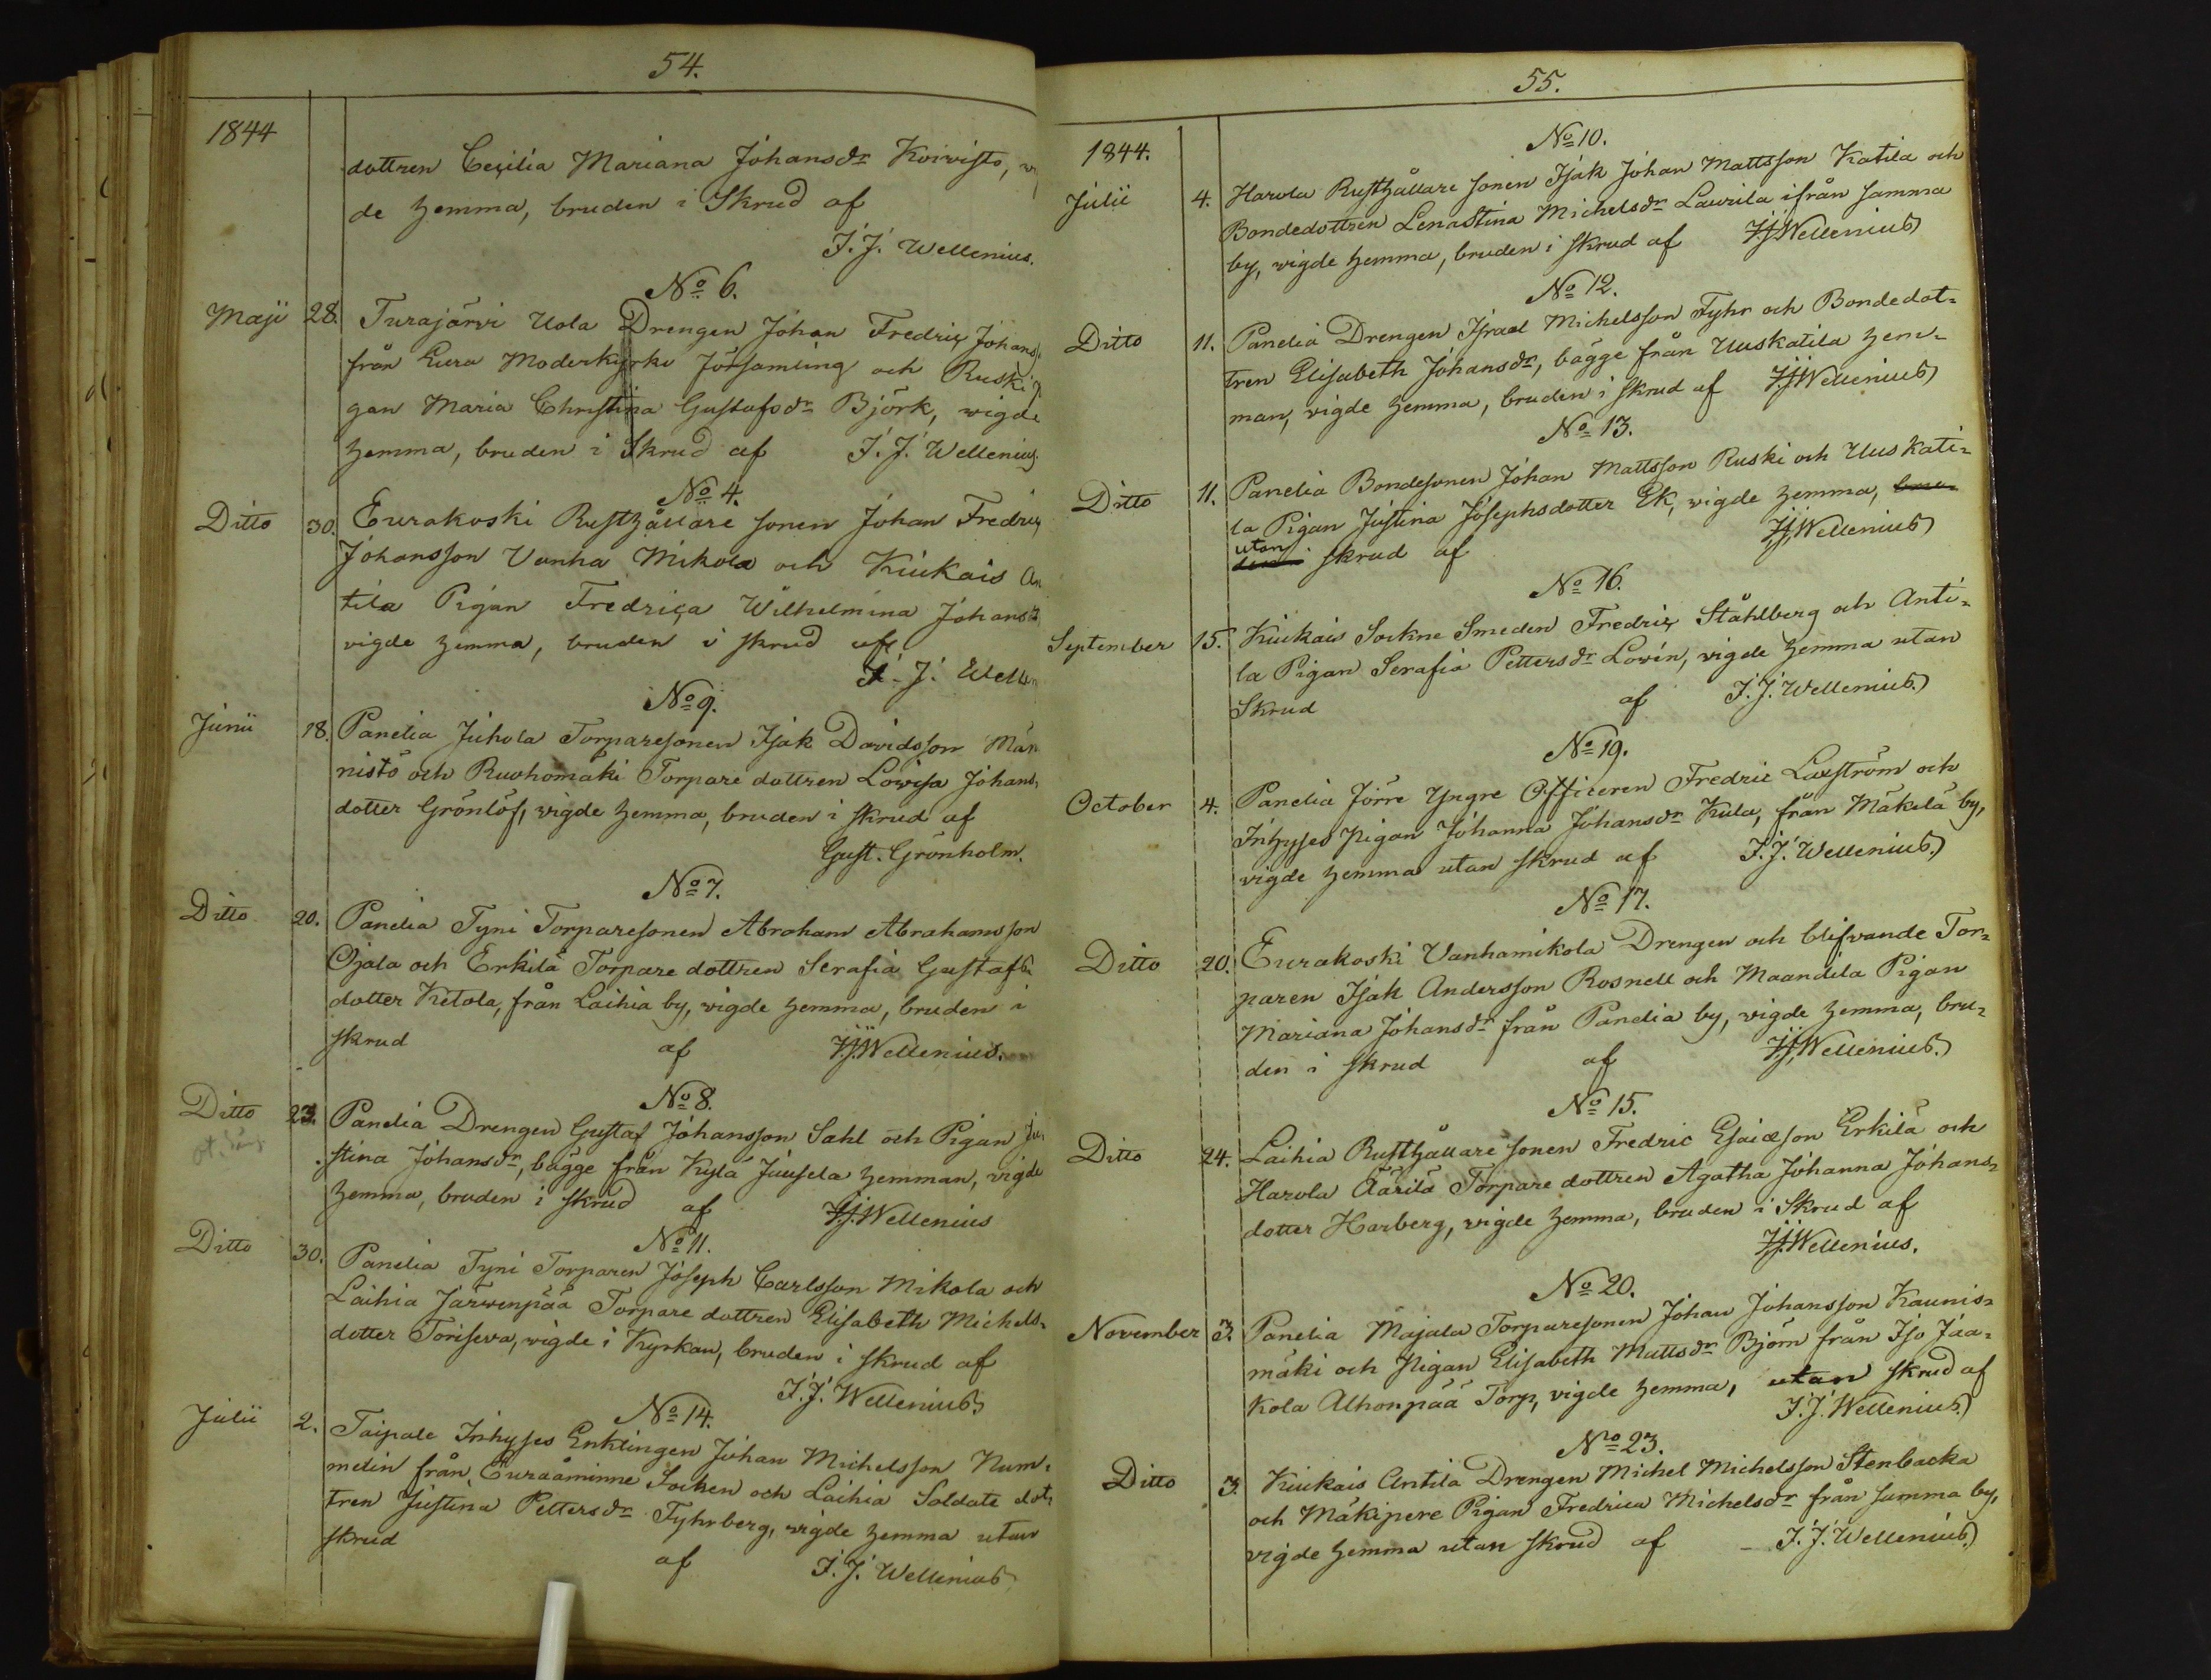 54.
1844
dottren Cecilia Mariana Johansdr Koivisto,
de hemma, bruden i Skrud af
I. J. Wellenius.
No 6.
Maji 28. Turajärvi Uola Drengen Johan Fredric Johans
från Eura Moderkyrko församling och Ruski
gan Maria Christina Gustafsdr Björk, vigde
hemma, bruden i Skrud af I. J. Wellenius
No 4.
Ditto 30. Eurakoski Rusthållare sonen Johan Fredric
Johansson Vanha Mikola och Kiukais An
tila Pigan Fredrica Wilhelmina Johansd
vigde hemma, bruden i skrud af
I. J. Wellen
No 9.
Junii 18. Panelia Juhola Torparesonen Isak Davidsson Män
nistö och Ruohomäki Torpare dottren Lovisa Johans,
dotter Grönlöf, vigde hemma, bruden i skrud af
Gust. Grönholm.
No 7.
Ditto 20. Panelia Tyni Torparesonen Abraham Abrahamsson
Ojala och Erkilä Torpare dottren Serafia Gustafs
dotter Ketola, från Laihia by, vigde hemma, bruden i
skrud af I.J.Wellenius.
No 8.
Ditto 23. Panelia Drengen Gustaf Johansson Sahl och Pigan Ju
stina Johansdr, bägge från Kylä Juusela hemman, vigde
hemma, bruden i skrud af I.J.Wellenius
No 11.
Ditto 30. Panelia Tyni Torparen Joseph Carlsson Mikola och
Laihia Järvenpää Torpare dottren Elisabeth Michels-
dotter Toriseva, vigde i Kyrkan, bruden i skrud af
I. J. Wellenius
No 14.
Julii 2. Taipale Inhyses Enklingen Johan Michelsson Num-
melin från Euraåminne Socken och Laihia Soldate dot-
tren Justina Pettersdr Fyhrberg, vigde hemma utan
skrud af I. J. Wellenius
55.
1844.
No 10.
Julii 4. Harola Rusthållare sonen Isak Johan Mattsson Katila och
Bondedottren Lenastina Michelsdr Laurila ifrån samma
by, vigde hemma, bruden i skrud af I.J.Wellenius
No 12.
Ditto 11. Panelia Drengen Israel Michelsson Fyhr och Bondedot-
tren Elisabeth Johansdr, bägge från Uuskatila hem-
man, vigde hemma, bruden i skrud af I.J.Wellenius
No 13.
Ditto 11. Panelia Bondesonen Johan Mattsson Ruski och Uuskati-
la Pigan Justina Josephsdotter Ek, vigde hemma, bru-
utan
den i skrud af I.J.Wellenius
No 16.
September 15. Kiukais Sockne Smeden Fredric Ståhlberg och Anti-
la Pigan Serafia Pettersdr Lovén, vigde hemma utan
Skrud af I. J. Wellenius.
No 19.
October 4. Panelia Jörre Yngre Officeren Fredric Laxström och
Inhyses Pigan Johanna Johansdr Kula, från Mäkelä by,
vigde hemma utan skrud af I. J. Wellenius.
No 17.
Ditto 20. Eurakoski Vanhamikola Drengen och blifvande Tor-
paren Isak Andersson Rosnell och Maandila Pigan
Mariana Johansdr från Panelia by, vigde hemma, bru-
den i skrud af I.J.Wellenius.
No 15.
Ditto 24. Laihia Rusthållare sonen Fredric Esaiæson Erkilä och
Harola Äärilä Torpare dottren Agatha Johanna Johans-
dotter Harberg, vigde hemma, bruden i Skrud af
I.J.Wellenius.
No 20.
November 3. Panelia Majala Torparesonen Johan Johansson Kaunis-
mäki och Pigan Elisabeth Mattsdr Björn från Iso Jaa-
kola Alhonpää Torp, vigde hemma, utan skrud af
I. J. Wellenius.
No 23.
Ditto 3. Kiukais Antila Drengen Michel Michelsson Stenbacka
och Mäkipere Pigan Fredrica Michelsdr från samma by,
vigde hemma utan skrud af - I. J. Wellenius.